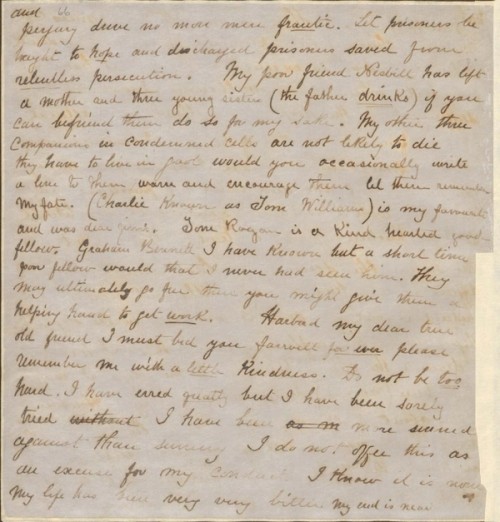 and
perjury drive no more men frantic. Let prisoners be
taught to hope and discharged prisoners saved from
relentless persecution. My poor friend Nesbitt has left
a mother and three young sisters (the father drinks) if you
can befriend them do so for my sake. My other three
companions in condemned cells are not likely to die
they have to live in gaol would you occasionally write
a line to them warn and encourage them let them remember
my fate. (Charlie Known as Tom Williams) is my favourite
and was dear Jim's. Tom Rogan is a Kind hearted good
fellow. Graham Bennett I have Known but a short time
poor fellow would that I never had seen him. They
may ultimately go free then you might give them a
helping hand to get work. my dear true
old friend I must bid you farewell for ever please
remember me with a little Kindness. Do not be too
hard. I have erred greatly but I have been sorely
tried without I have been as m more sinned
against than sinning I do not offer this as
an excuse for my conduct I Know it is none
My life has been very very bitter my end is near